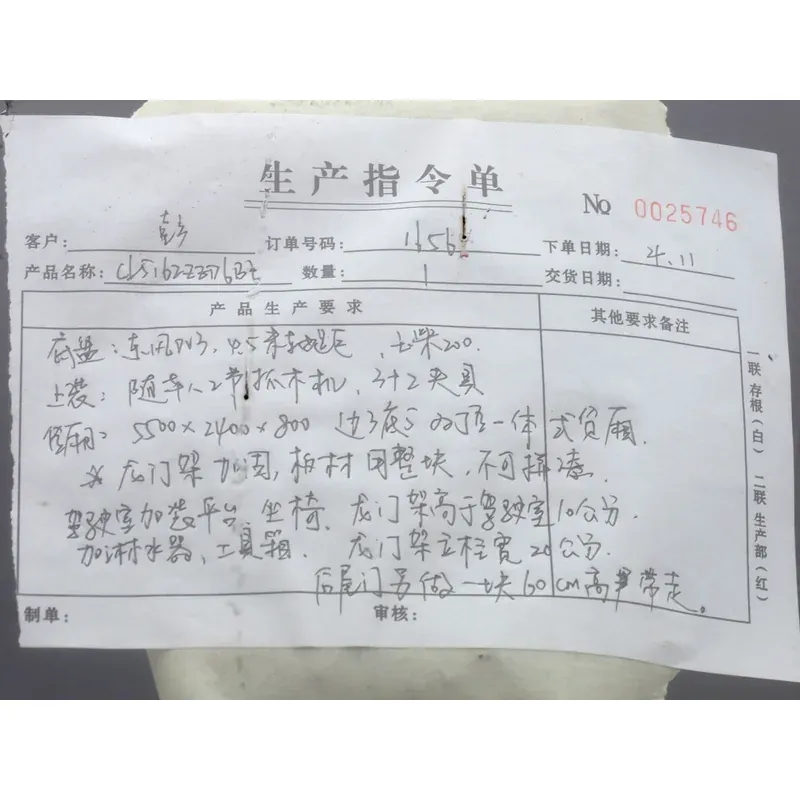 生产指令单
No 0025746
客户: 彭 订单号码: 1656 下单日期: 4.11
产品名称: 数量: 1 交货日期:
产品生产要求 其他要求备注
底盘: 东风D13, 4.5米轴距, 玉柴200.
上装: 随车人2节抓木机, 3寸2夹具
5500×2400×800 式货厢.
※ 龙门架加固, 板材用整块, 不可拼凑.
驾驶室加装平台, 坐椅, 龙门架高于驾驶室10公分.
加淋水器, 工具箱. 龙门架立柱宽20公分.
后尾门另做一块60cm高 带走.
制单: 审核:
一联 存根(白) 二联 生产部(红)